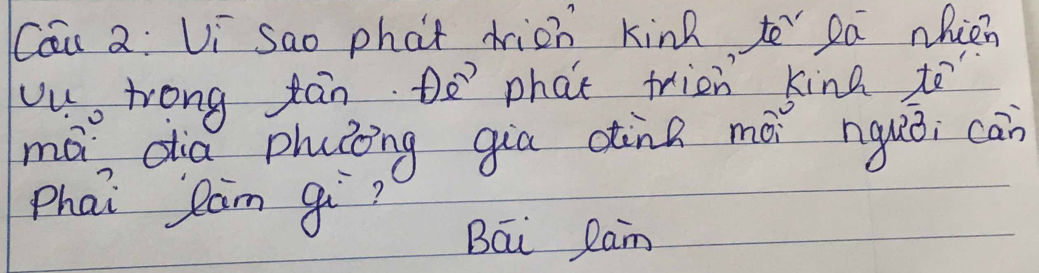 Câu 2: Vì sao phát triển kinh tế là nhiên
vụ trọng tân. Để phát triển kinh tế
mỗi địa phương gia đình mỗi người cần
phải làm gì?
Bài làm